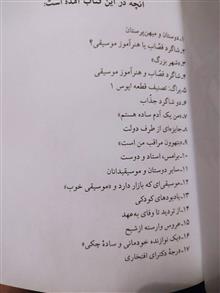 آنچه در این کتاب آمده است:
۱.دوستان و میهن‌پرستان
۲.شاگرد قصّاب یا هنرآموز موسیقی؟
۳.«شهر بزرگ»
۴.شاگرد قصّاب و هنرآموز موسیقی
۵.پراگ: تصنیف قطعه اپوس ۱
۶.دو شاگرد جذّاب
۷.«من یک آدم ساده هستم»
۸.جایزه‌ای از طرف دولت
۹.«بتهوون مراقب من است»
۱۰.برامس، استاد و دوست
۱۱.سایر دوستان و موسیقیدانان
۱۲.موسیقی‌ای که بازار دارد و «موسیقی خوب»
۱۳.یادبودهای کودکی
۱۴.از تردید تا وفای به‌عهد
۱۵.عروس وارسته از شبح
۱۶.«یک نوازنده خودمانی و سادهٔ چکی»
۱۷.درجهٔ دکترای افتخاری